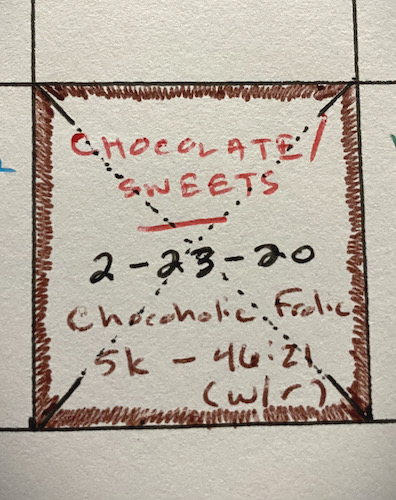 CHOCOLATE/
SWEETS
2-23-20
Chocoholic Frolic
5k - 46:21
(w/r)